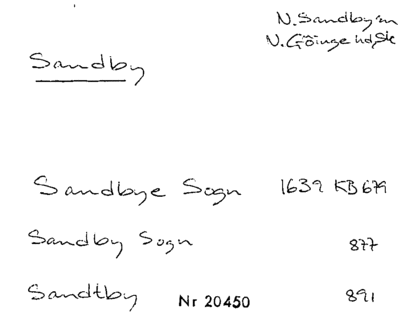 N. Sandby sn
N. Göinge hd, Sk
Sandby
Sandbye Sogn 1639 KB 679
Sandby Sogn 877
Sandtby Nr 20450 891